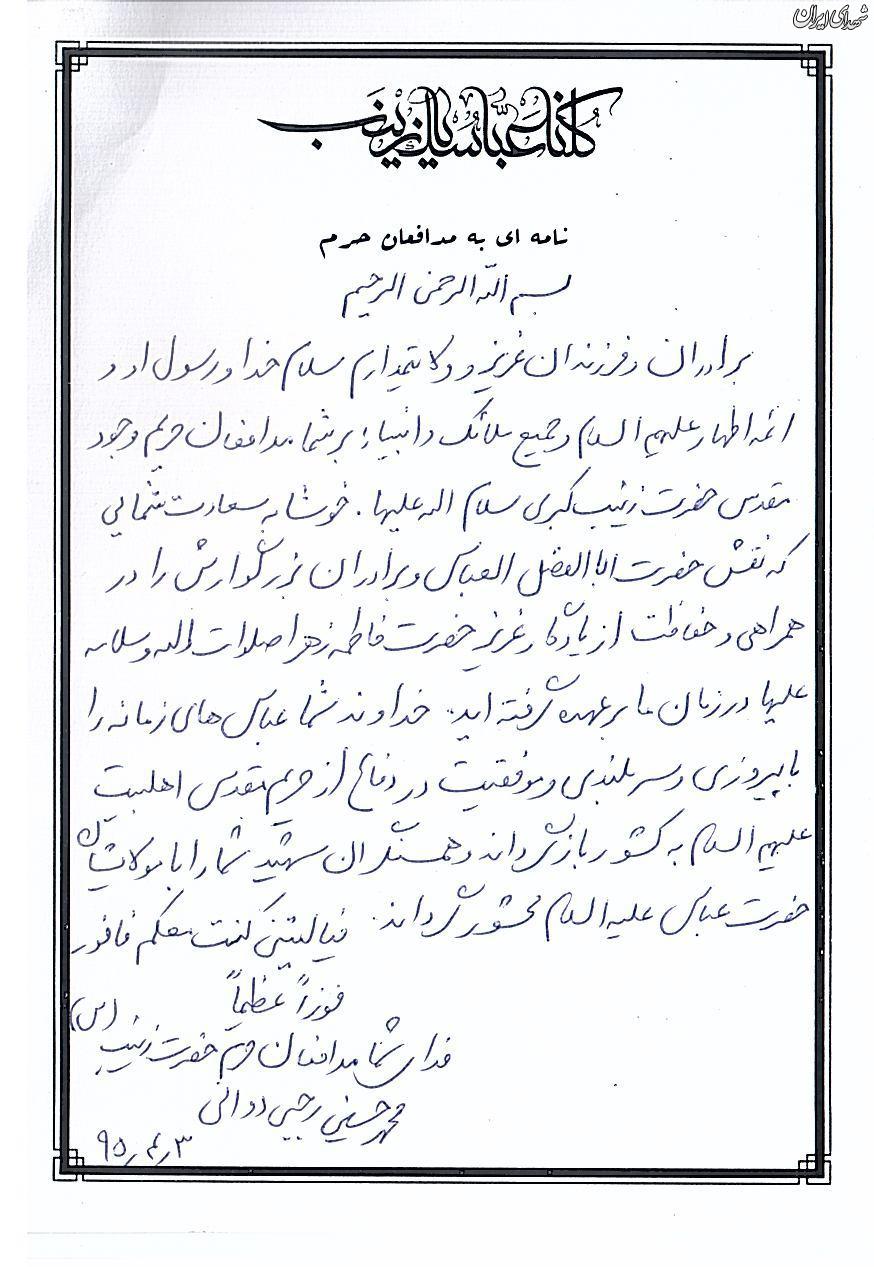 شهدای ایران
کلنا عباسک یا زینب
نامه ای به مدافعان حرم
بسم الله الرحمن الرحیم
برادران و فرزندان عزیز و ولایتمدارم سلام خدا و رسول او و
ائمه اطهار علیهم السلام و جمیع ملائک و انبیاء بر شما مدافعان حریم وجود
مقدس حضرت زینب کبری سلام الله علیها. خوشا به سعادت شمایی
که نقش حضرت اباالفضل العباس و برادران بزرگوارش را در
همراهی و حفاظت از یادگار عزیز حضرت فاطمه زهرا صلوات الله و سلامه
علیها در زمان ما بر عهده گرفته اید. خداوند شما عباس های زمانه را
با پیروزی و سربلندی و موفقیت در دفاع از حریم مقدس اهلبیت
علیهم السلام به کشور بازگرداند و همسنگران شهید شما را با مولایشان
حضرت عباس علیه السلام محشور گرداند. فیالیتنی کنت معکم فافوز
فوزاً عظیماً
فدای شما مدافعان حرم حضرت زینب (س)
محمدحسین رجبی دوانی
۹۵٫۴٫۳